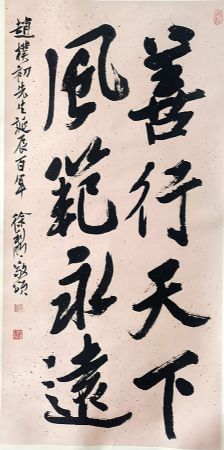 善行天下
風範永遠
趙樸初先生誕辰百年
徐
敬頌